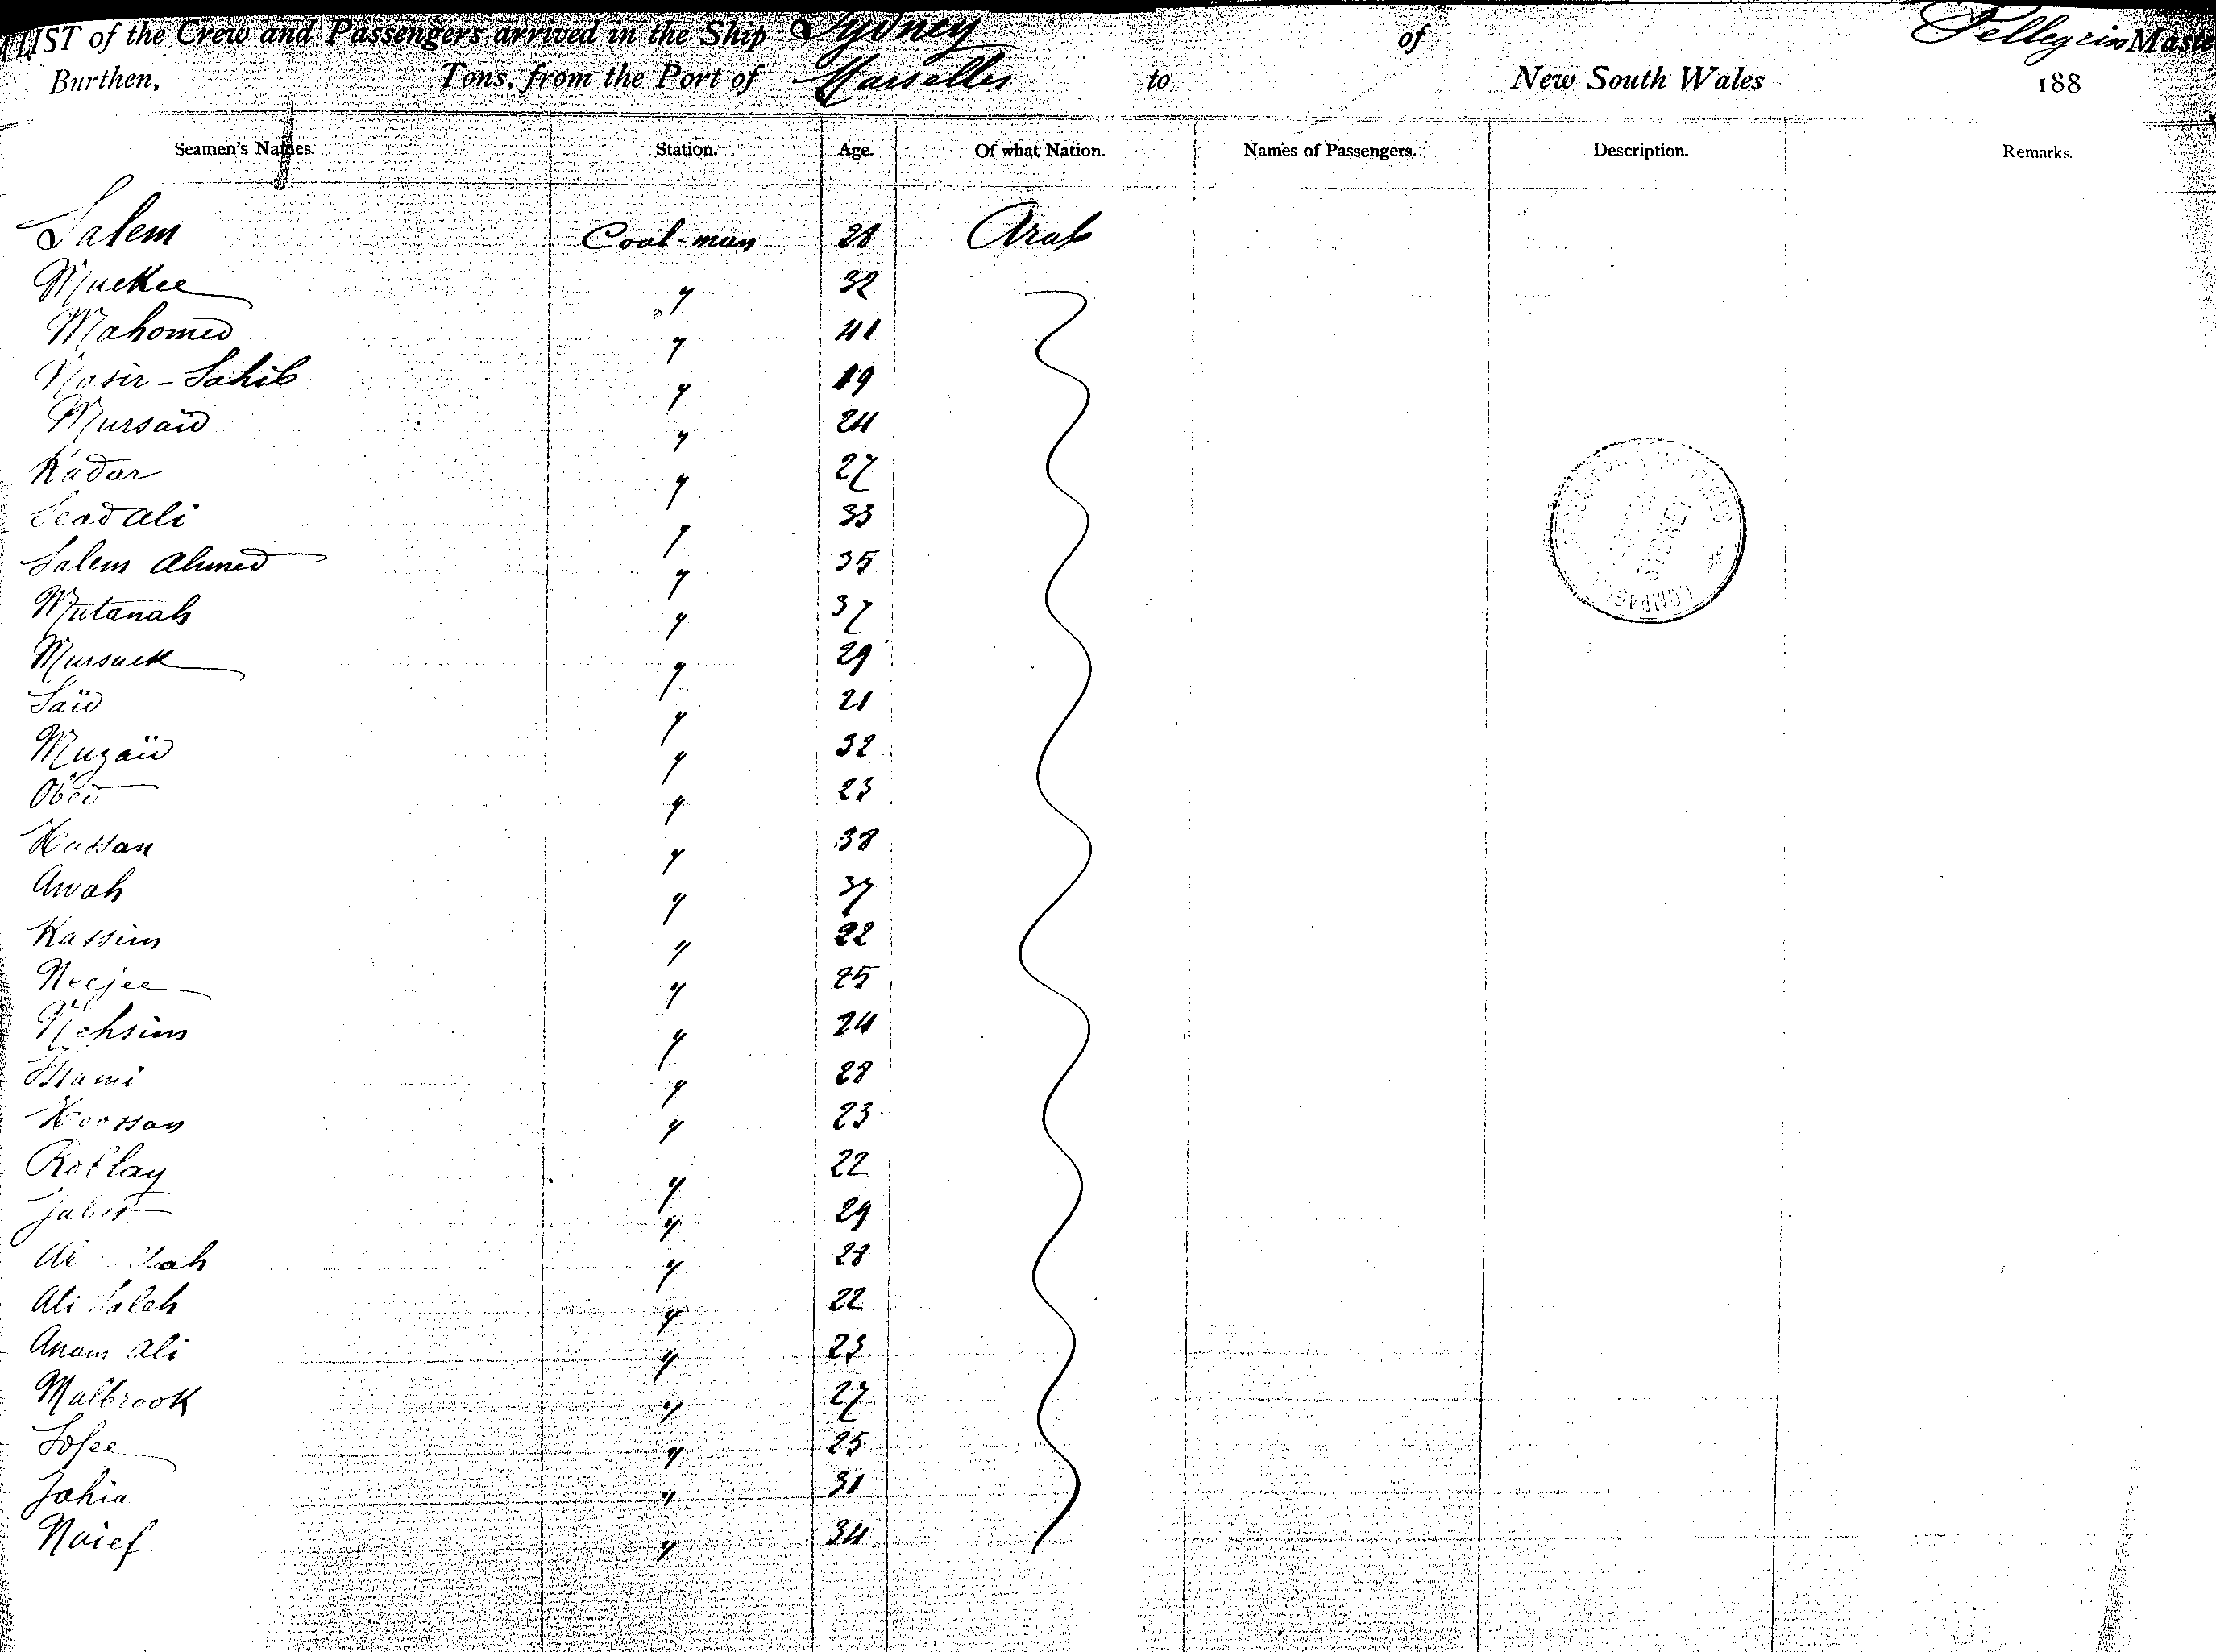 LIST of the Crew and Passengers arrived in the Ship Sydney of Pellegrin Maste
Burthen, Tons, from the Port of Marseilles to New South Wales 188
Seamen's Names. Station. Age. Of what Nation. Names of Passengers. Description. Remarks.
Salem Coal-man 28 Arab
Muckee " 32
Mahomed " 41
Nasir-Sahib " 19
Mursaïd " 24
Kadar " 27
Sead Ali " 33
Salem Ahmed " 35
Mutanah " 37
Mursuck " 29
Saïd " 21
Muzaïd " 32
Obed " 23
Hassan " 38
Awah " 37
Kassim " 22
Neejee " 25
Nehsim " 24
" 28
" 23
Roblay " 22
" 29
" 28
Ali Saleh " 22
Anam Ali " 23
Malbrook " 27
Sofee " 25
Jahia " 31
Naief " 34
SYDNEY